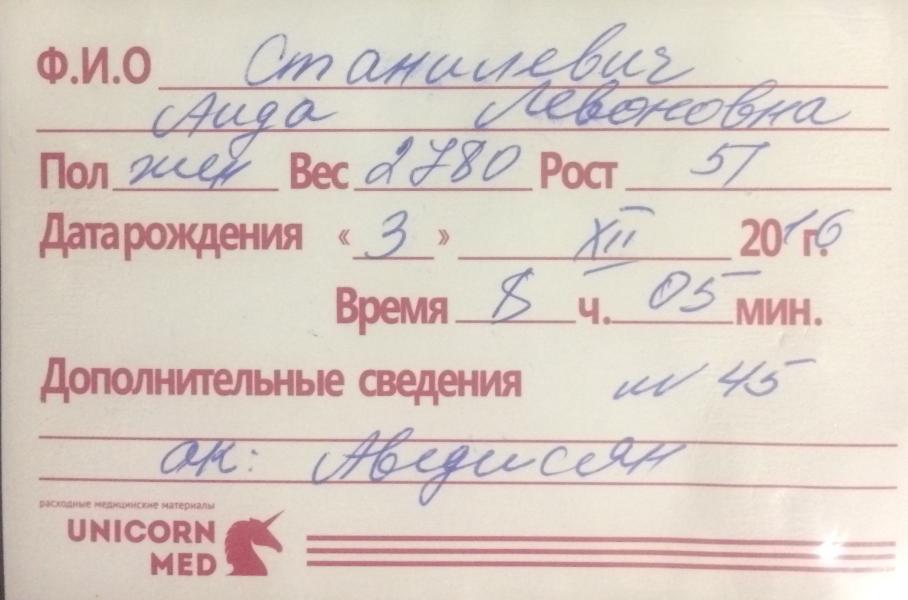 Ф.И.О Станилевич
Аида Левоновна
Пол жен Вес 2780 Рост 51
Дата рождения « 3 » XII 2016 г.
Время 8 ч. 05 мин.
Дополнительные сведения 45
ак: Аведисян
расходные медицинские материалы
UNICORN
MED